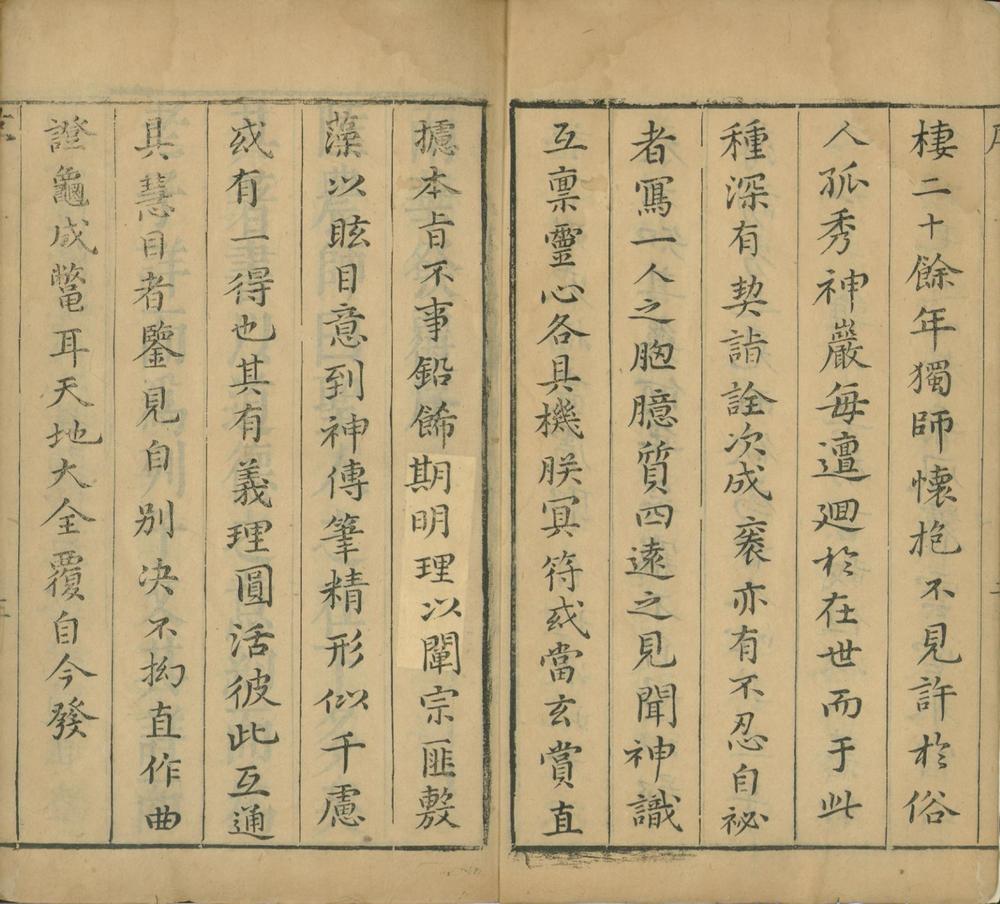 棲二十餘年獨師懷抱不見許於俗
人孤秀神巖每邅迴於在世而于此
種深有契詣詮次成袠亦有不忍自祕
者寫一人之胸臆質四遠之見聞神識
互禀靈心各具機朕冥符或當玄賞直
攄本旨不事鉛餙期明理以闡宗匪敷
藻以眩目意到神傳筆精形似千慮
或有一得也其有義理圓活彼此互通
具慧目者鑒見自別决不拗直作曲
證龜成鼈耳天地大全覆自今發